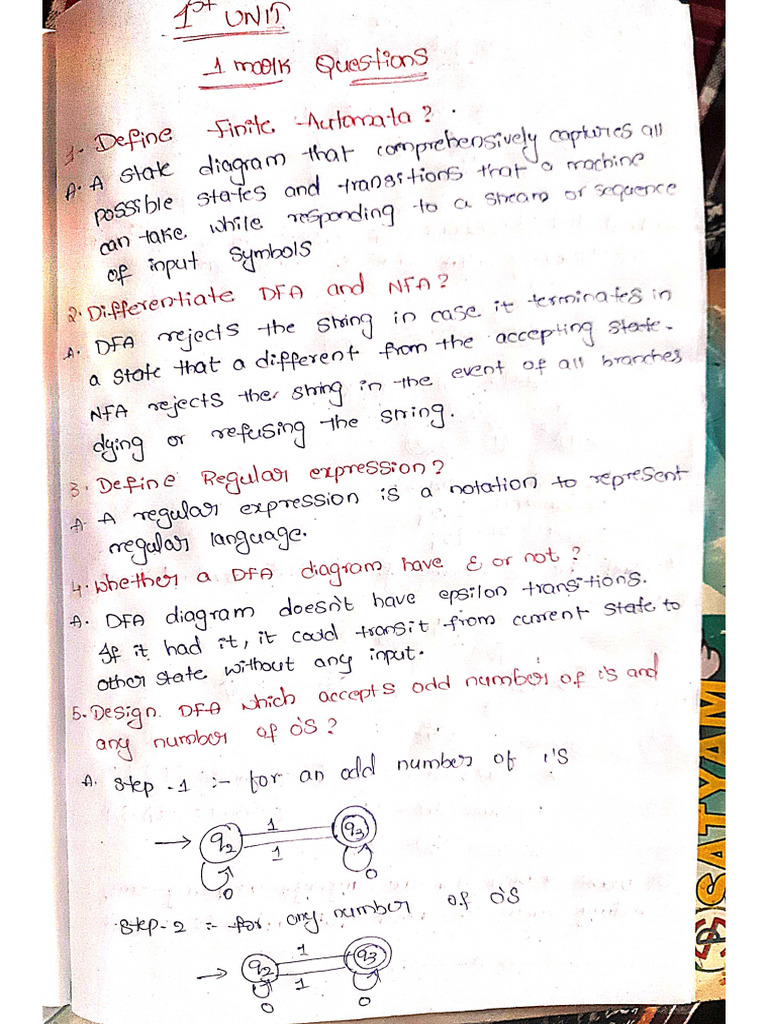 1st UNIT
1 mark Questions
1. Define Finite Automata?
A. A state diagram that comprehensively captures all
possible states and transitions that a machine
can take while responding to a stream or sequence
of input symbols
2. Differentiate DFA and NFA?
A. DFA rejects the string in case it terminates in
a state that a different from the accepting state.
NFA rejects the string in the event of all branches
dying or refusing the string.
3. Define Regular expression?
A. A regular expression is a notation to represent
regular language.
4. Whether a DFA diagram have ε or not?
A. DFA diagram doesn't have epsilon transitions.
If it had it, it could transit from current state to
other state without any input.
5. Design DFA which accepts odd number of 1's and
any number of 0's?
A. Step-1 :- for an odd number of 1's
1
q2 q3
1
0 0
Step-2 :- for any number of 0's
1
q2 q3
1
0 0
SATYAM